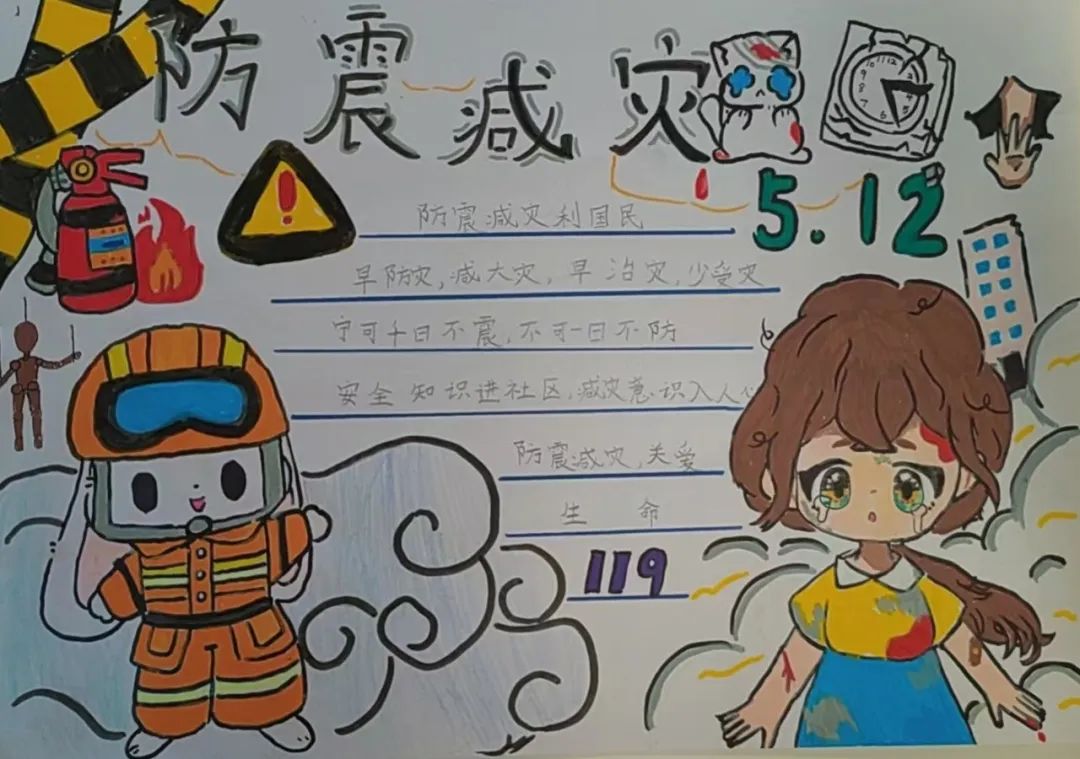 防震减灾
5.12
防震减灾利国民
早防灾,减大灾,早治灾,少受灾
宁可千日不震,不可一日不防
安全知识进社区,减灾意识入人心
防震减灾,关爱
生命
119